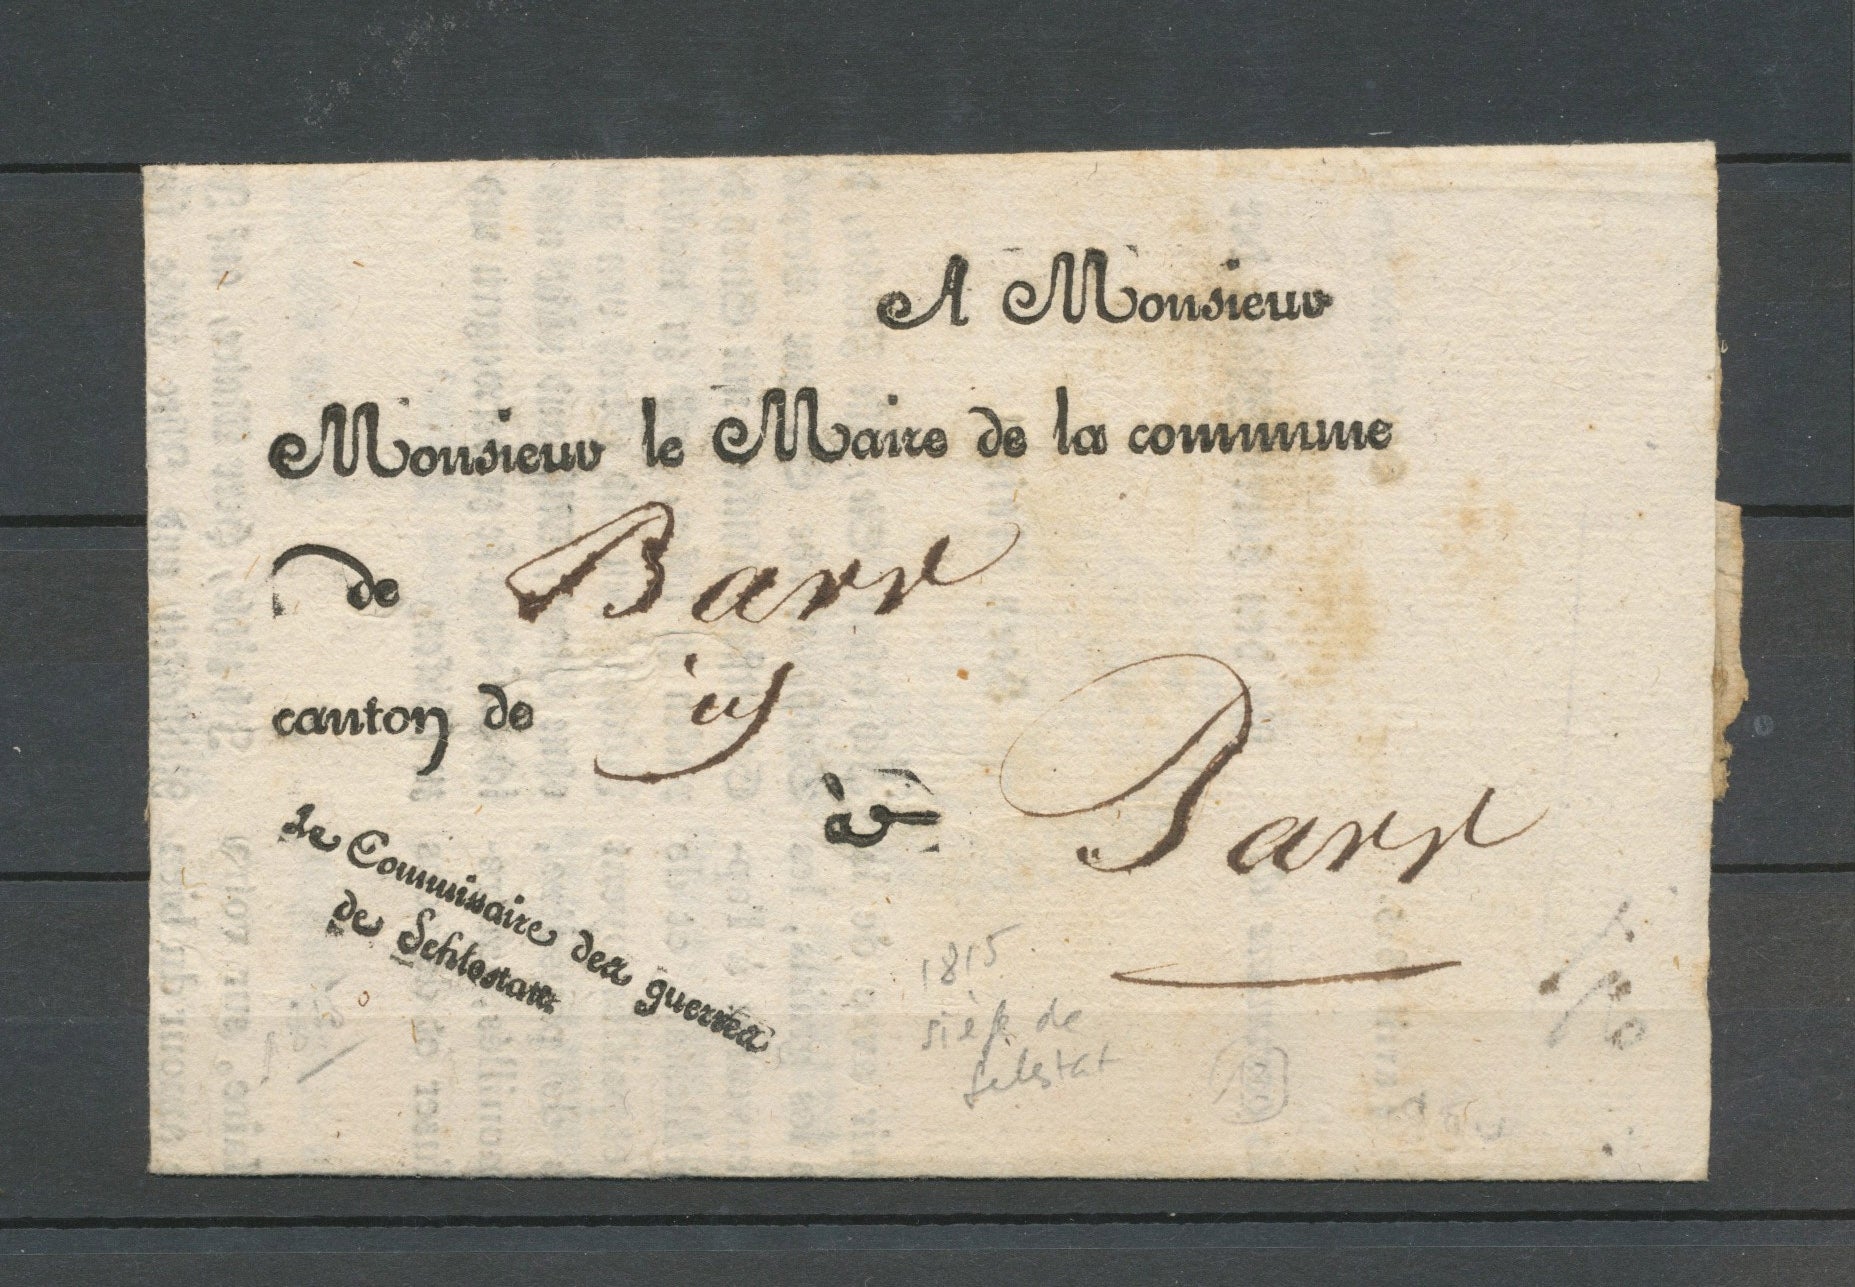 A Monsieur
Monsieur le Maire de la commune
de Barr
canton de id
à Barr
Le Commissaire des guerres
de Schlestatt
1815
siège de
Selestat